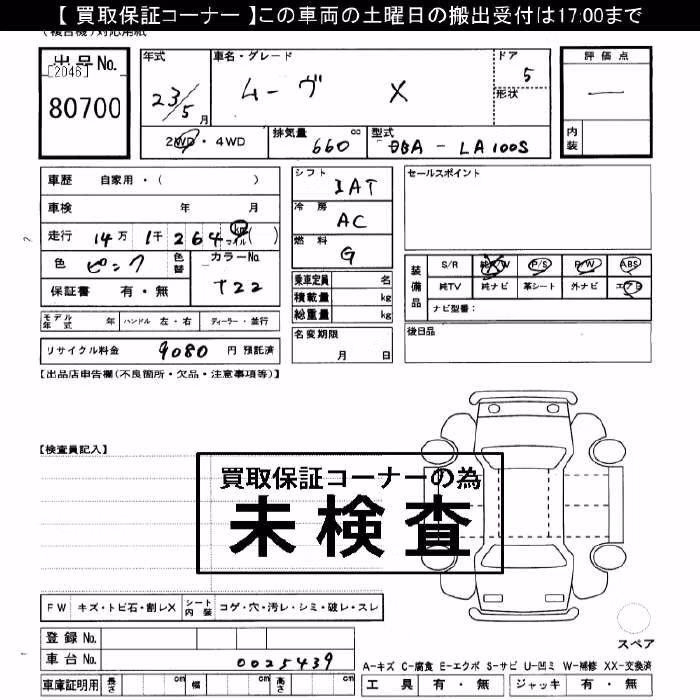 【 買取保証コーナー 】この車両の土曜日の搬出受付は17:00まで
(複合機)対応用紙
出品No.
[2046]
80700
年式 車名・グレード ドア
23/5月 ムーヴ X 5
形状
2WD・4WD 排気量 660 cc 型式 DBA - LA100S
評価点
—
内装
車歴 自家用・( )
車検 年 月
走行 14万 1千 264 km マイル( )
色 ピンク 色替 カラーNo. T22
保証書 有・無
シフト IAT
冷房 AC
燃料 G
乗車定員 名
積載量 kg
総重量 kg
セールスポイント
装備品 S/R 純A/W P/S P/W ABS
純TV 純ナビ 革シート 外ナビ エアB
ナビ型番:
モデル年式 年 ハンドル 左・右 ディーラー・並行
名変期限 月 日
後日品
リサイクル料金 9080 円 預託済
【出品店申告欄(不良箇所・欠品・注意事項等)】
【検査員記入】
買取保証コーナーの為
未検査
FW キズ・トビ石・割レX シート内装 コゲ・穴・汚レ・シミ・破レ・スレ
スペア
登録No.
車台No. 0025439
A-キズ C-腐食 E-エクボ S-サビ U-凹ミ W-補修 XX-交換済
車庫証明用 長さ cm 幅 cm 高さ cm
工具 有・無 ジャッキ 有・無